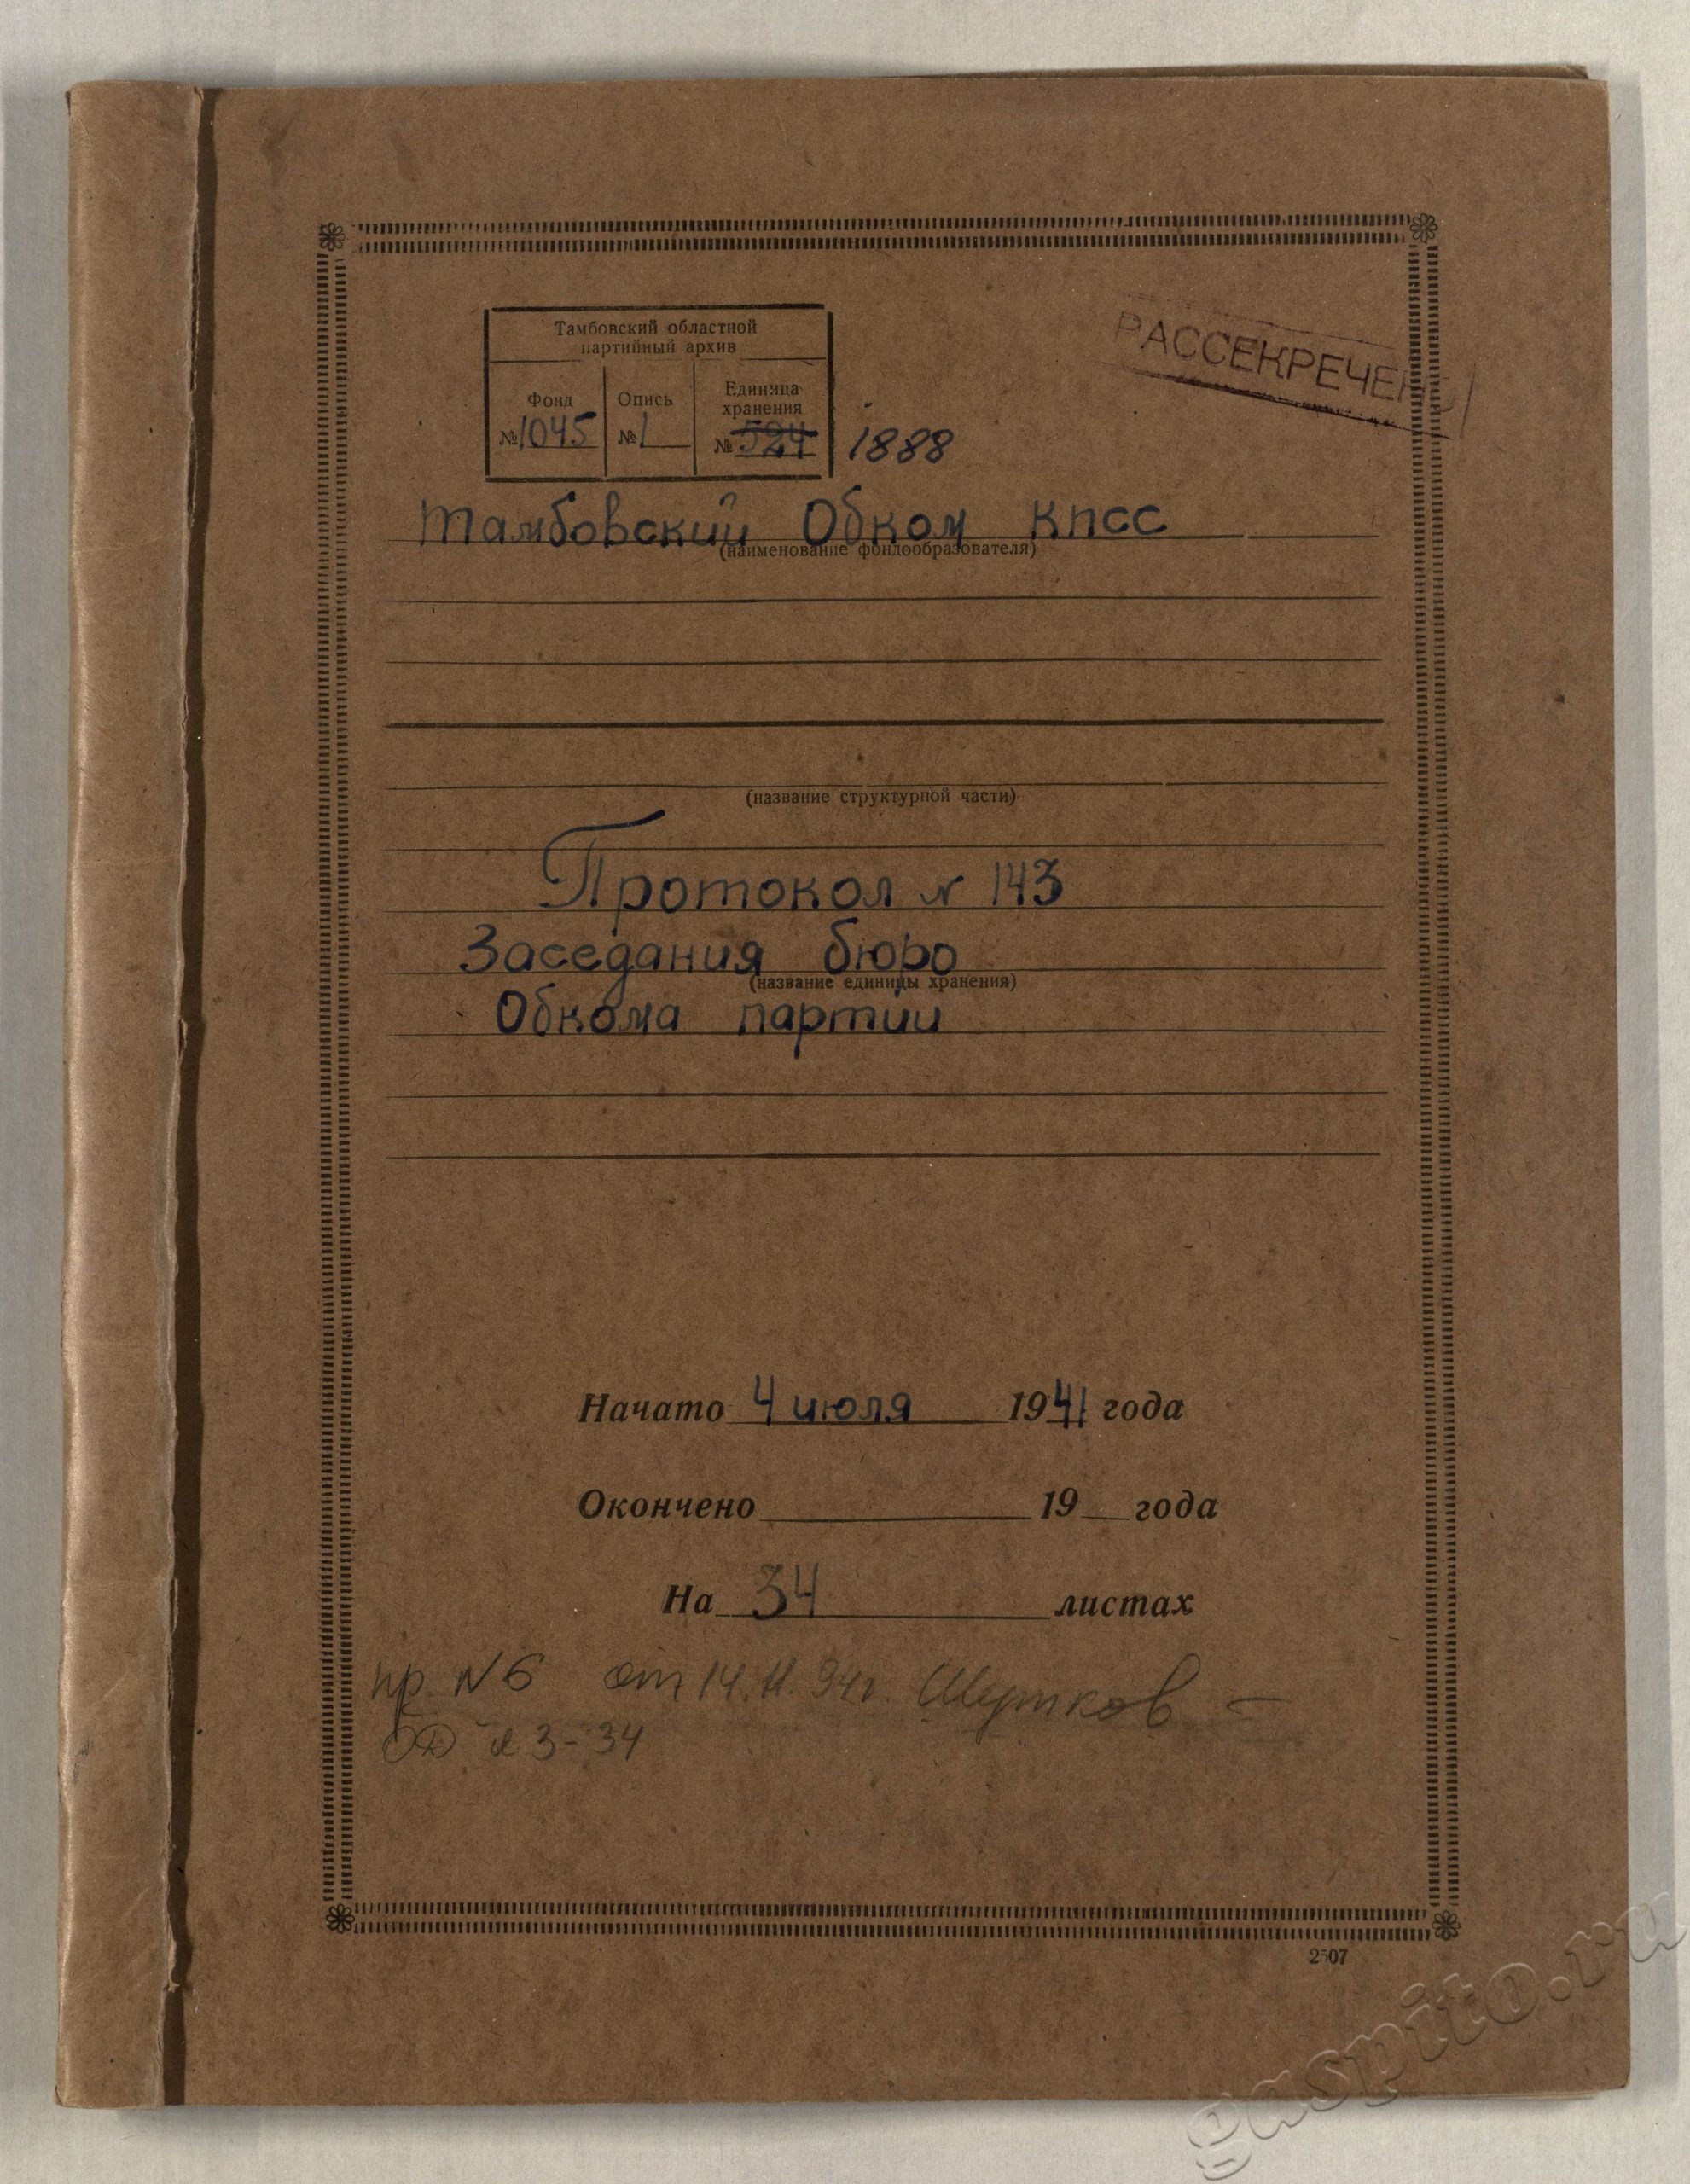 Тамбовский областной
партийный архив
РАССЕКРЕЧЕНО
Фонд Опись Единица хранения
№1045 №1 №524 1888
Тамбовский Обком КПСС
(наименование фондообразователя)
(название структурной части)
Протокол № 143
Заседания бюро
(название единицы хранения)
Обкома партии
Начато 4 июля 1941 года
Окончено 19 года
На 34 листах
пр №6 от 14.11.94г.
л 3-34
2507
gaspito.ru